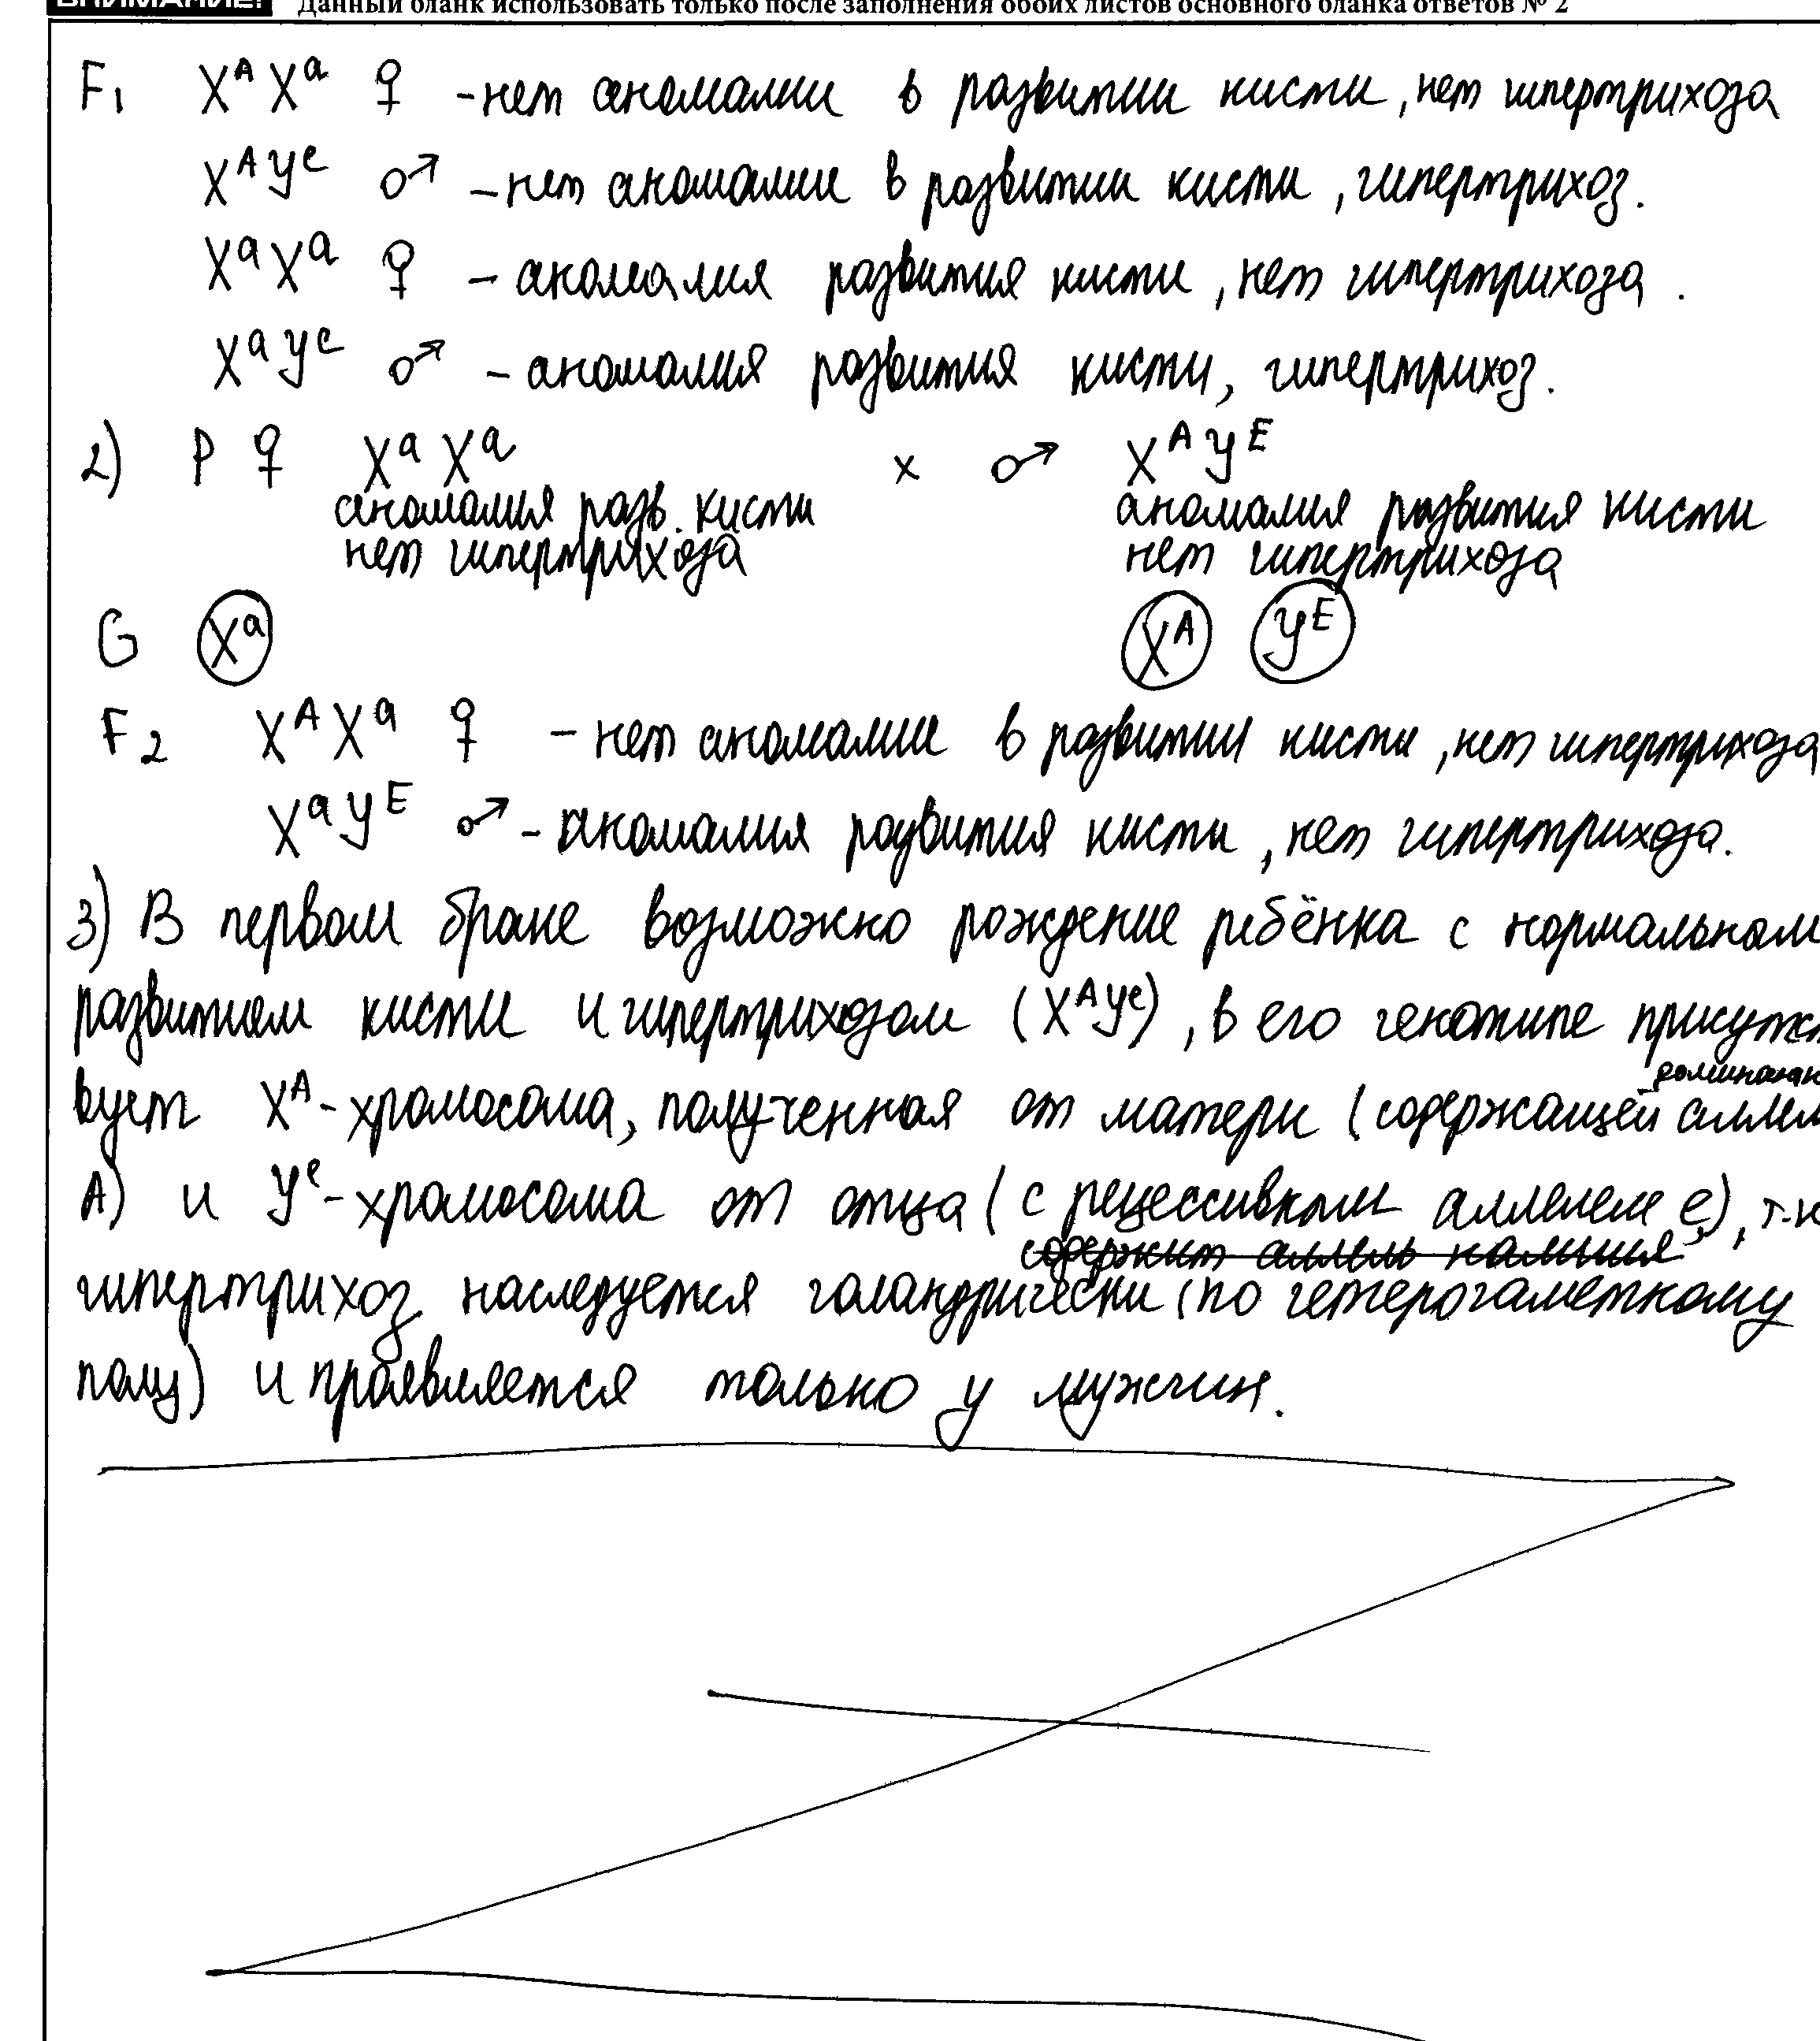 ВНИМАНИЕ! Данный бланк использовать только после заполнения обоих листов основного бланка ответов № 2
F1 XᴬXᵃ ♀ - нет аномалии в развитии кисти, нет гипертрихоза
XᴬYᵉ ♂ - нет аномалии в развитии кисти, гипертрихоз.
XᵃXᵃ ♀ - аномалия развития кисти, нет гипертрихоза.
XᵃYᵉ ♂ - аномалия развития кисти, гипертрихоз.
2) P ♀ XᵃXᵃ x ♂ XᴬYᴱ
аномалия разв. кисти аномалия развития кисти
нет гипертрихоза нет гипертрихоза
G Xᵃ Xᴬ Yᴱ
F2 XᴬXᵃ ♀ - нет аномалии в развитии кисти, нет гипертрихоза
XᵃYᴱ ♂ - аномалия развития кисти, нет гипертрихоза.
3) В первом браке возможно рождение ребёнка с нормальным
развитием кисти и гипертрихозом (XᴬYᵉ), в его генотипе присутст
вует Xᴬ-хромосома, полученная от матери (содержащей доминант аллел
А) и Yᵉ-хромосома от отца (с рецессивным аллелем е), т.к
содержит аллель
гипертрихоз наследуется голандрически (по гетерогаметному
полу) и проявляется только у мужчин.